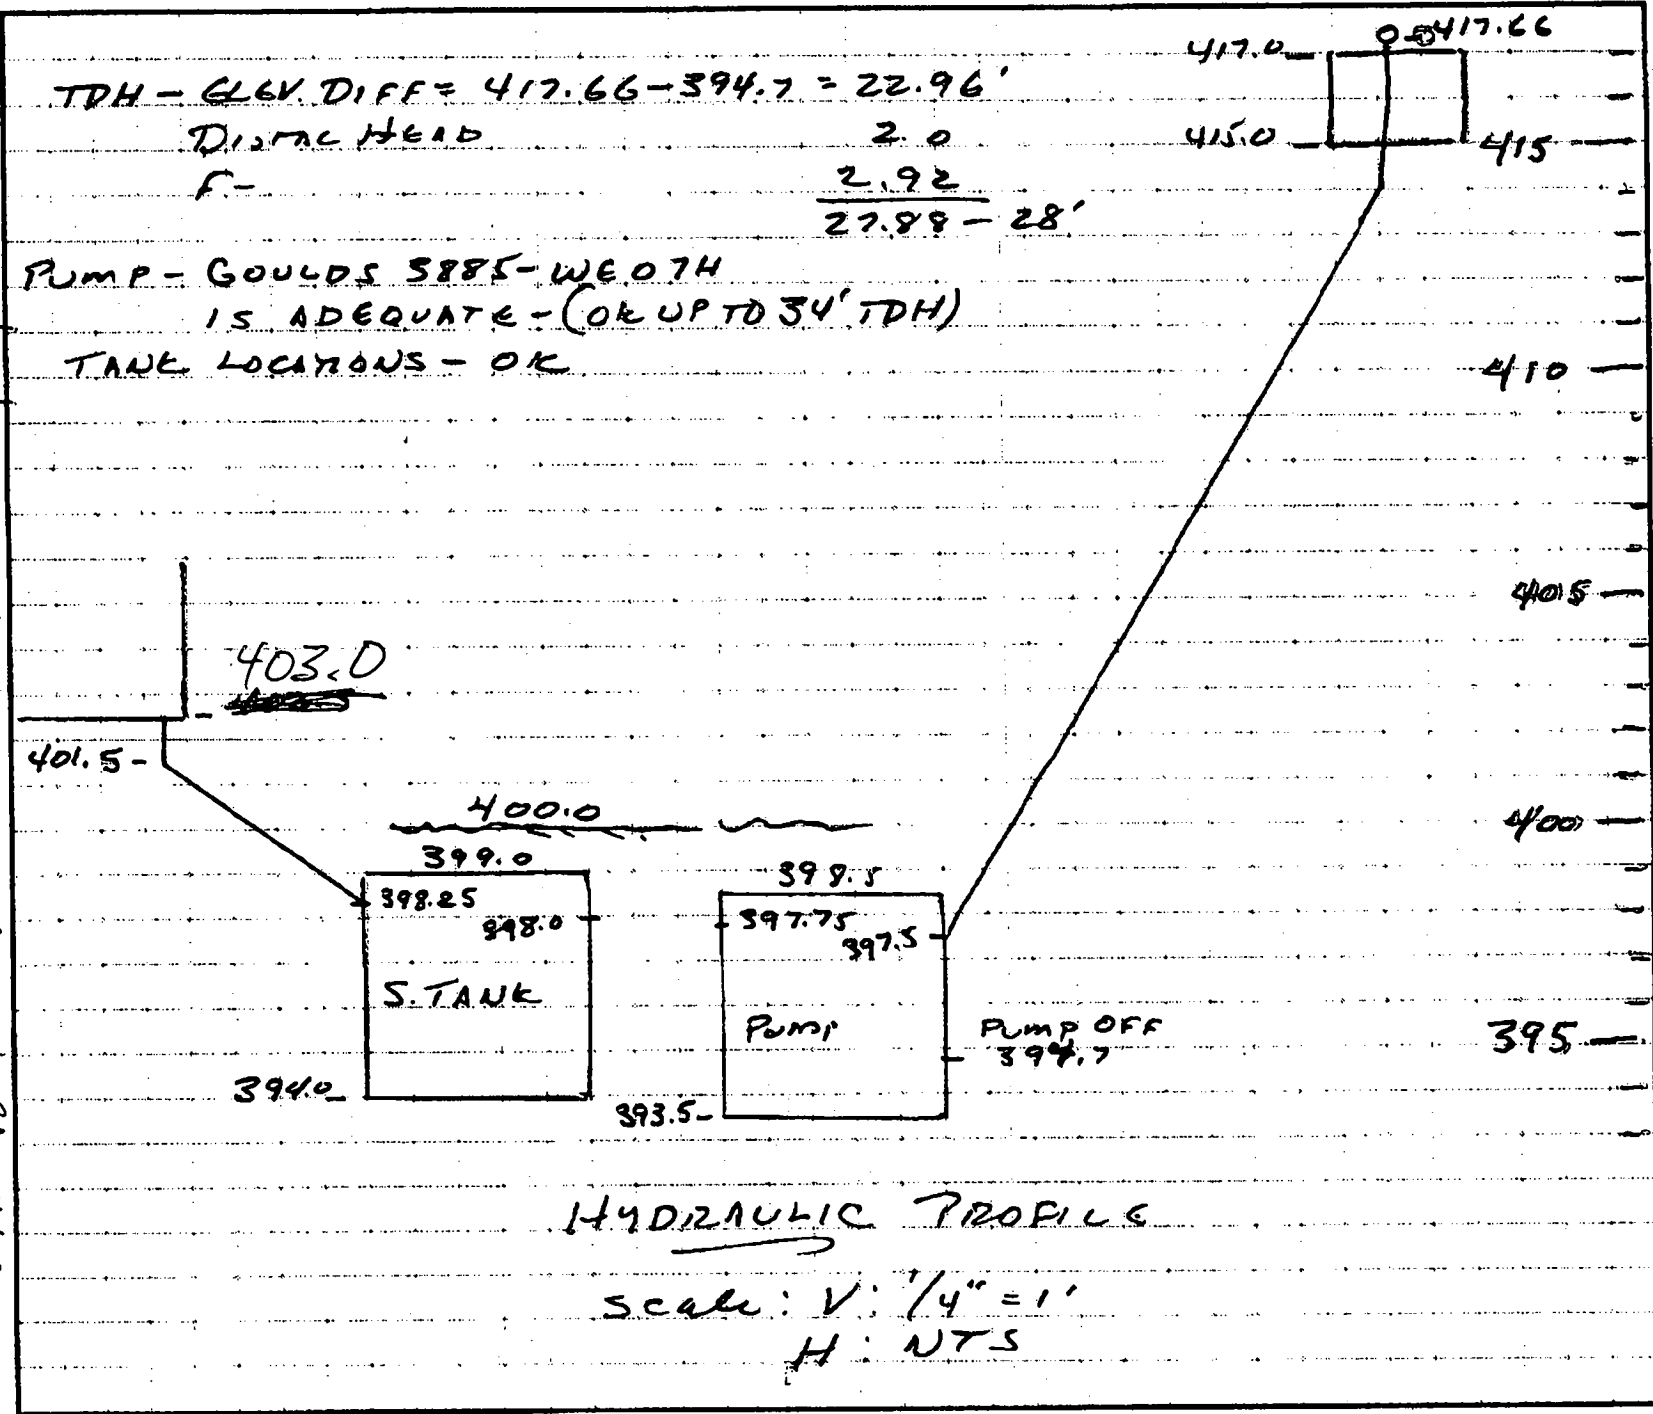 TDH - ELEV. DIFF = 417.66 - 394.7 = 22.96'
DISTAL HEAD 2.0
F - 2.92
27.88 - 28'
PUMP - GOULDS 3885 - WE07H
IS ADEQUATE - (OK UP TO 34' TDH)
TANK LOCATIONS - OK
417.66
417.0
415.0
415
410
405
403.0
401.5
400.0
400
399.0
398.5
398.25
398.0
397.75
397.5
S. TANK
PUMP
PUMP OFF
394.7
395
394.0
393.5
HYDRAULIC PROFILE
Scale: V: 1/4" = 1'
H: NTS